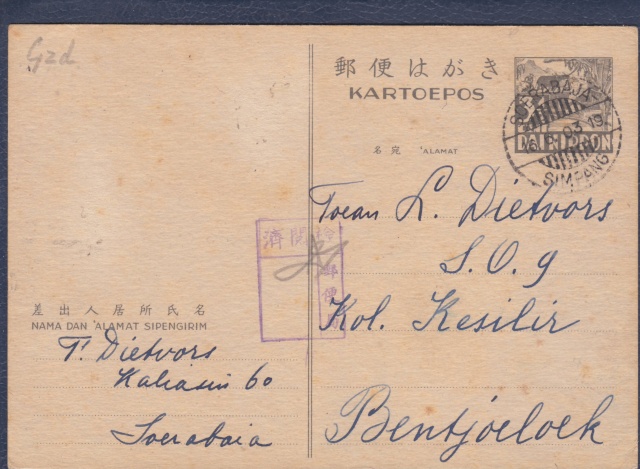 Gzd
郵便はがき
KARTOEPOS
3½
DAI NIPPON
SOERABAJA
16.8.03.19
SIMPANG
名宛 'ALAMAT
Toean L. Dietvors
S.O.g
Kol. Kesilir
Bentjoeloek
検閲済
郵便
差出人居所氏名
NAMA DAN 'ALAMAT SIPENGIRIM
T. Dietvors
Kaliasin 60
Soerabaia